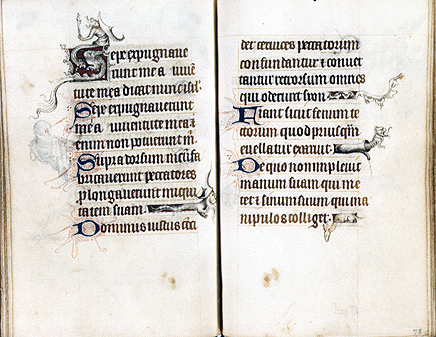 Sepe expugnave
runt me a iuve
tute mea dicat nunc isrl.
Sepe expugnaverunt
me a iuventute mea
enim non potuerunt m.
Supra dorsum meum fa
bricaverunt peccatores
prolongaverunt iniqui
tatem suam.
Dominus iustus
det cervices peccatorum
confundantur et conver
tantur retrorsum omnes
qui oderunt syon.
Fiant sicut fenum te
ctorum quod priusqm
evellatur exaruit.
De quo non implevit
manum suam qui me
tet et sinum suum qui ma
nipulos colliget.
78